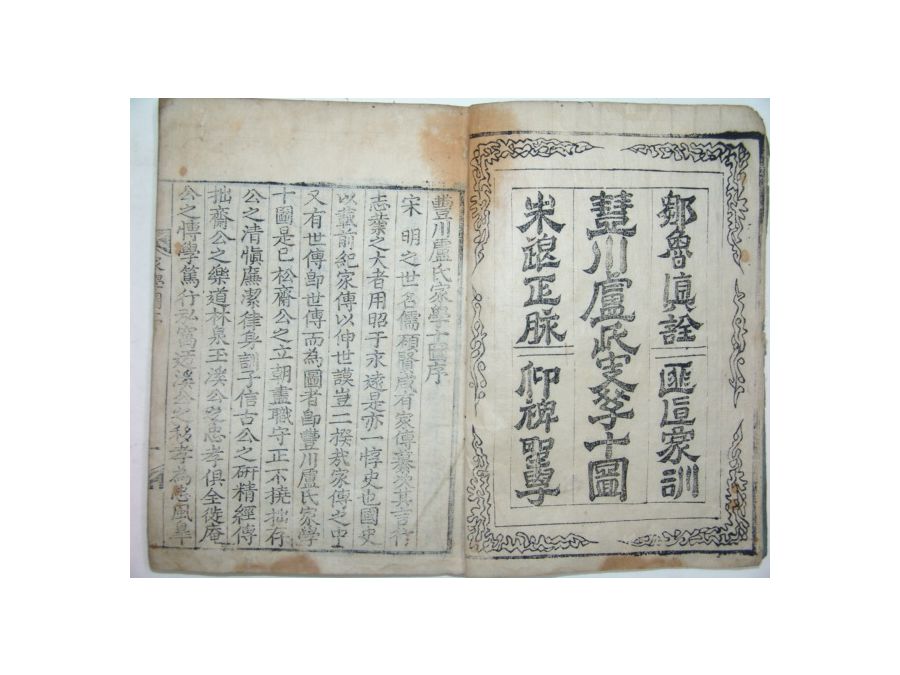 鄒魯眞詮 匪直家訓
豐川盧氏家學十圖
朱退正脉 仰裨聖學
豐川盧氏家學十圖序
宋 明之世名儒碩賢咸有家傳纂次其言行
志業之大者用昭于永遠是亦一惇史也國史
以載前紀家傳以伸世謨豈二揆哉家傳之中
又有世傳卽世傳而爲圖者卽豐川盧氏家學
十圖是已松齋公之立朝盡職守正不撓拙存
公之淸愼廉潔律身訓子信古公之硏精經傳
拙齋公之樂道林泉玉溪公之忠孝俱全徙庵
公之博學篤行私窩 溪公之移孝爲忠風皐